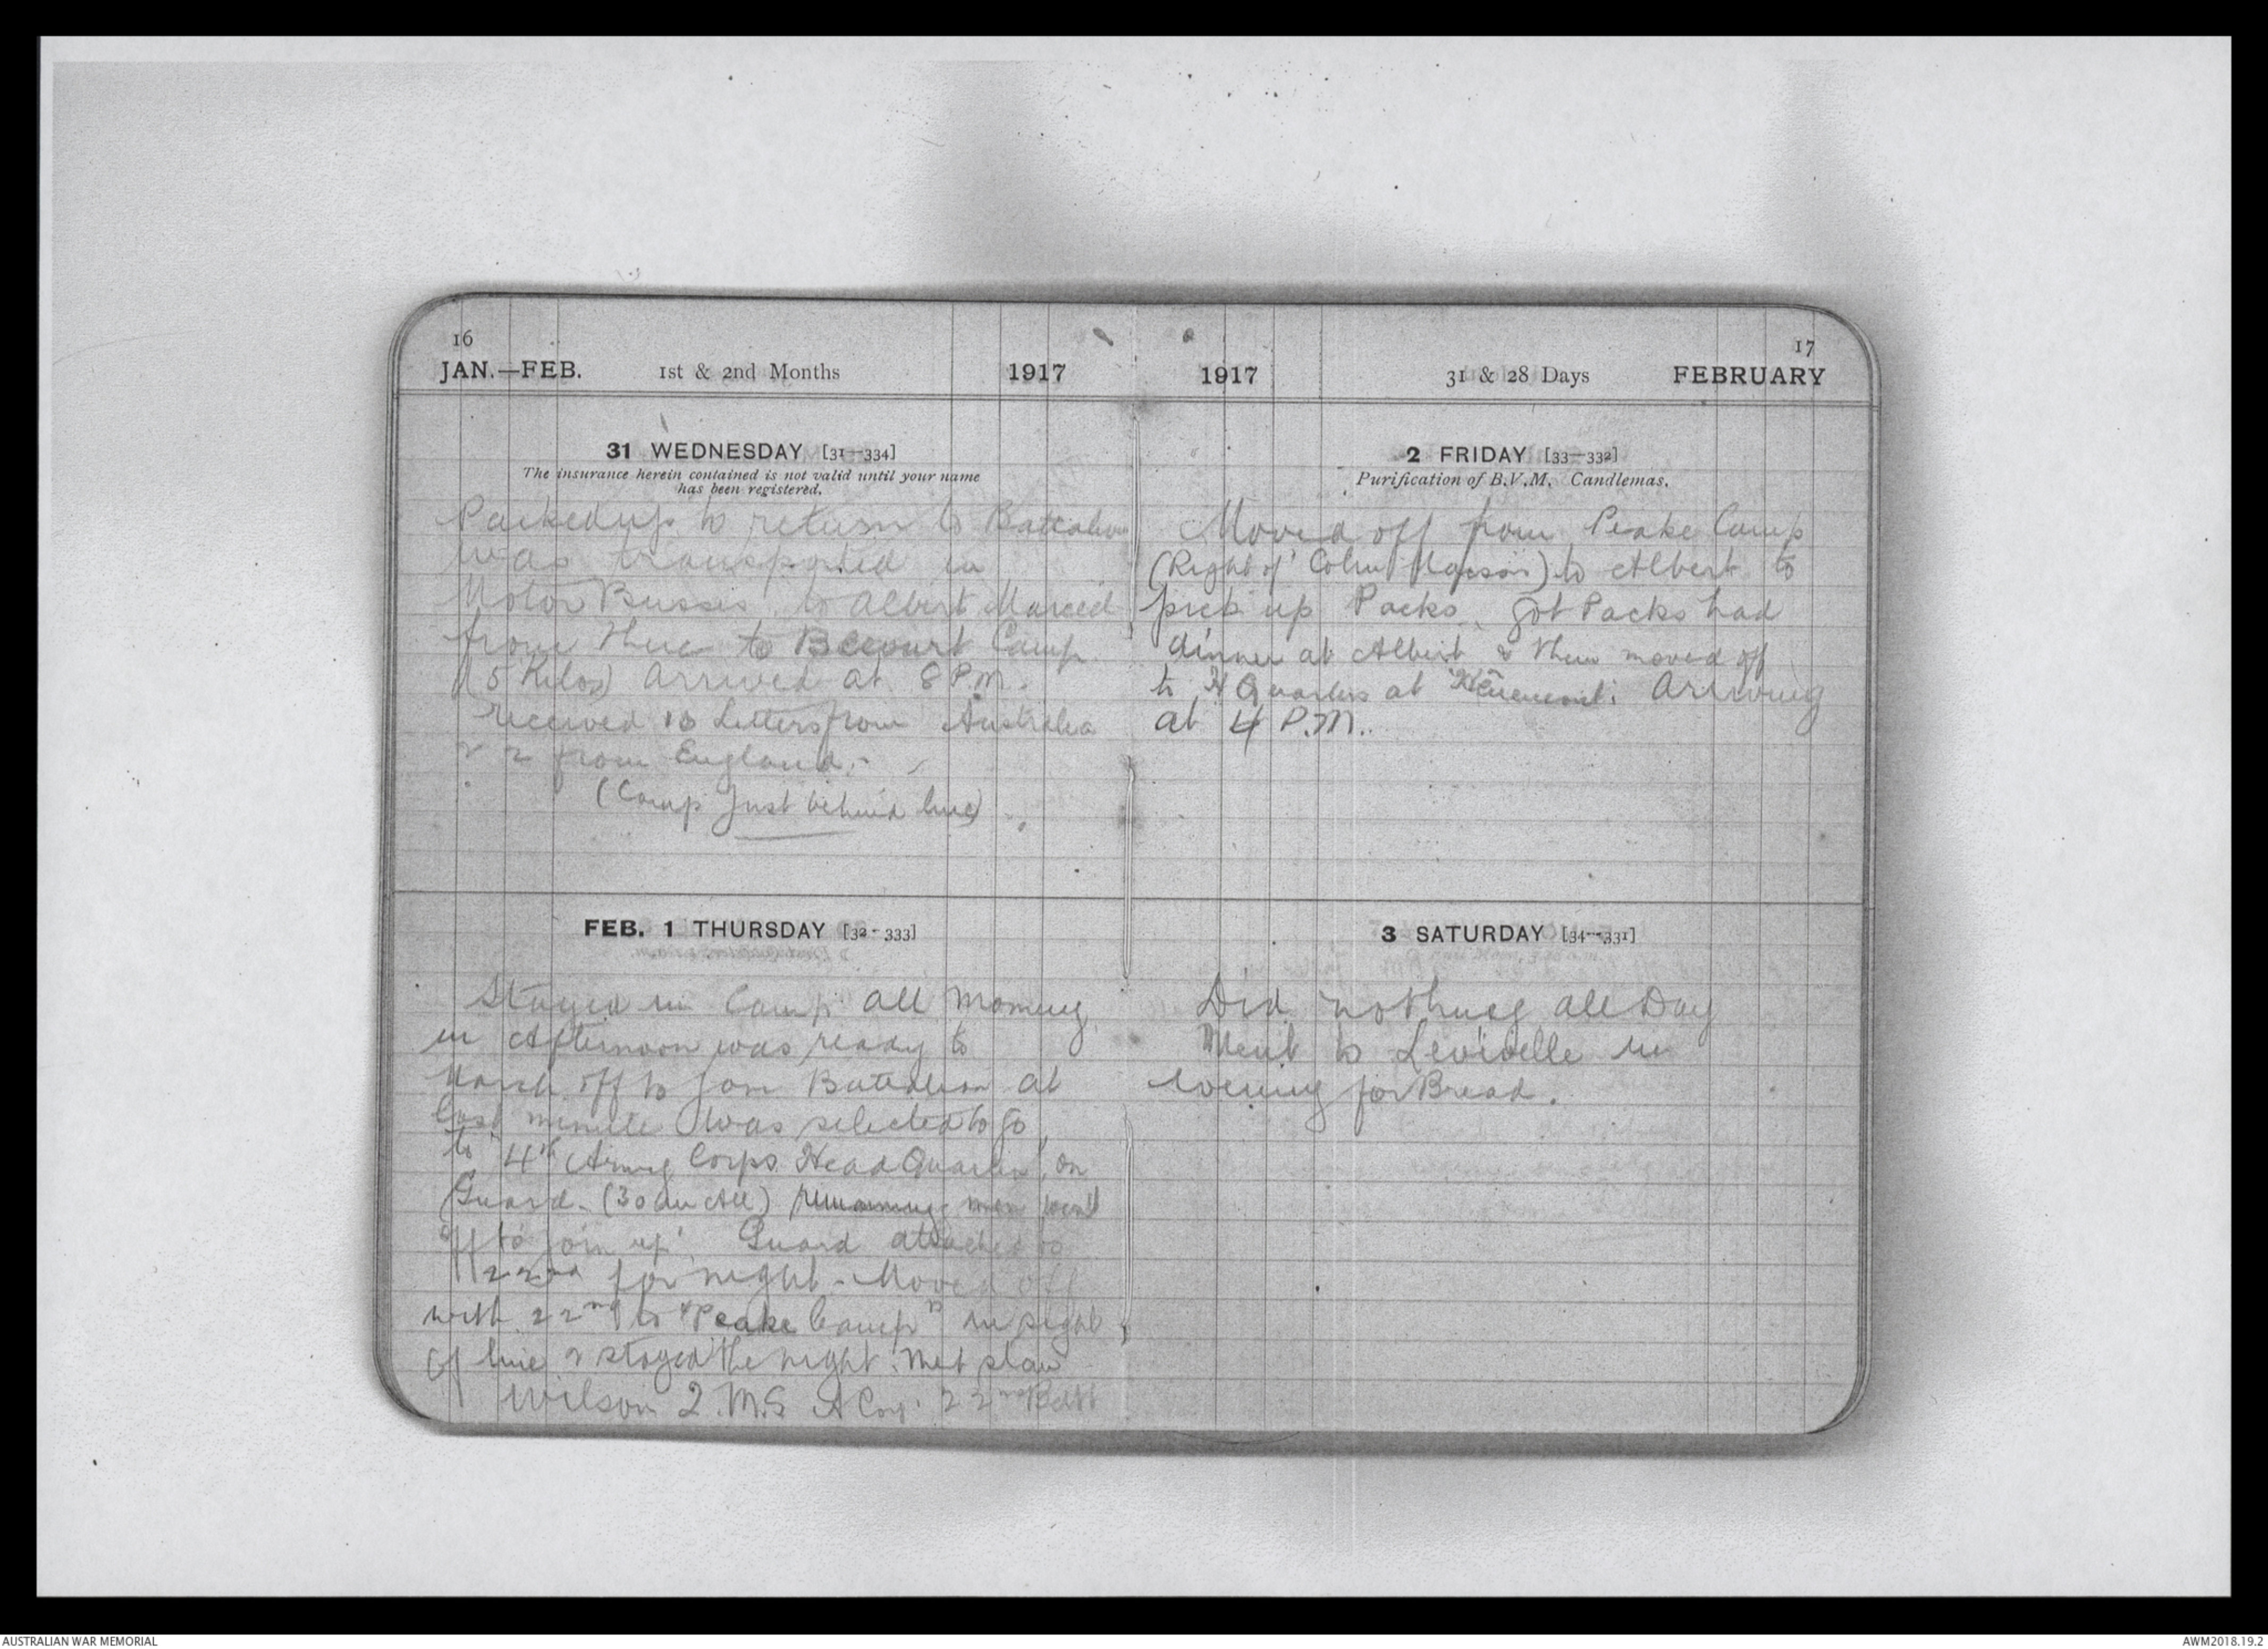 16
JAN.—FEB. 1st & 2nd Months 1917
31 WEDNESDAY [31—334]
The insurance herein contained is not valid until your name
has been registered.
Packed up to return to Battalion
was transported in
Motor Busses to Albert Marced
from there to Becourt Camp
(5 Kilos) Arrived at 8 P.M.
received 10 Letters from Australia
& 2 from England.
(Camp Just behind line)
FEB. 1 THURSDAY [32-333]
Stayed in Camp all Morning
in Afternoon was ready to
March off to Join Battalion at
last minute was selected to go
to 4th Army Corps Head Quarters on
Guard. (30 in All) remaining men went
off to join up. Guard attached to
22nd for night. Moved off
with 22nd to "Peake Camp" in sight
of line & stayed the night. Met
Wilson Q.M.S A Coy. 22nd Batt
17
1917 31 & 28 Days FEBRUARY
2 FRIDAY [33—332]
Purification of B.V.M. Candlemas.
Moved off from Peake Camp
(Right of ) to Albert to
pick up Packs. Got Packs had
dinner at Albert & then moved off
to H Quarters at Arriving
at 4 P.M.
3 SATURDAY [34—331]
Did nothing all Day
Went to in
evening for Bread.
AUSTRALIAN WAR MEMORIAL
AWM2018.19.2